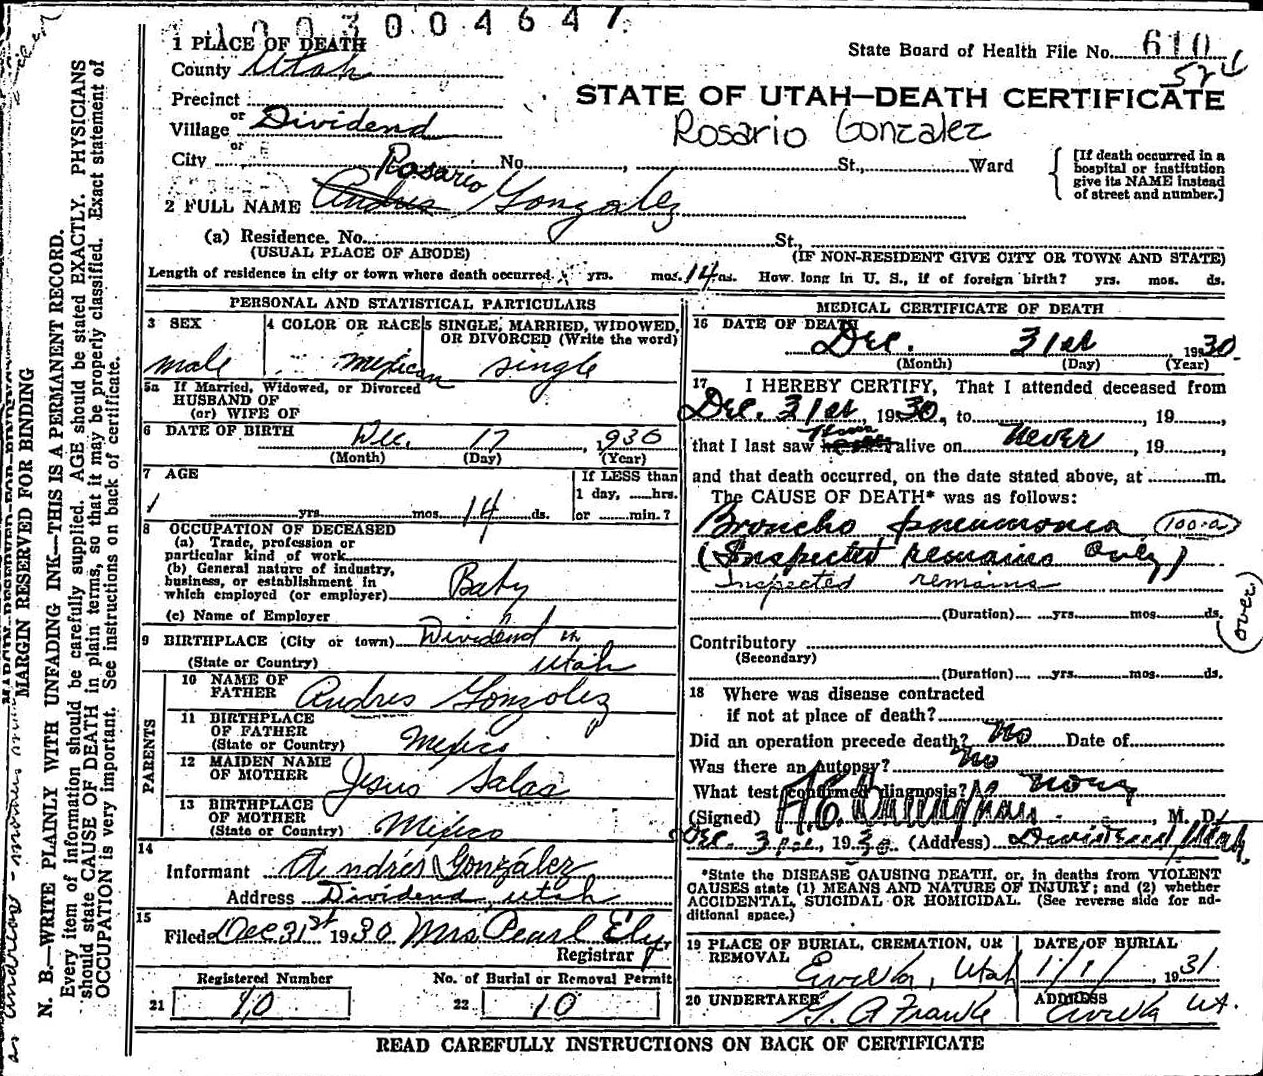 1003004647
1 PLACE OF DEATH
State Board of Health File No. 610
524
County Utah
STATE OF UTAH—DEATH CERTIFICATE
Precinct
or
Village Dividend
Rosario Gonzalez
or
City No. St., Ward
[If death occurred in a hospital or institution give its NAME instead of street and number.]
Rosario
2 FULL NAME Andres Gonzalez
(a) Residence. No. St.,
(USUAL PLACE OF ABODE) (IF NON-RESIDENT GIVE CITY OR TOWN AND STATE)
Length of residence in city or town where death occurred yrs. mos. 14 ds. How long in U. S., if of foreign birth? yrs. mos. ds.
PERSONAL AND STATISTICAL PARTICULARS
3 SEX 4 COLOR OR RACE 5 SINGLE, MARRIED, WIDOWED, OR DIVORCED (Write the word)
male mexican single
5a If Married, Widowed, or Divorced
HUSBAND OF
(or) WIFE OF
6 DATE OF BIRTH Dec. 17 1930
(Month) (Day) (Year)
7 AGE If LESS than
1 day, hrs.
yrs. mos. 14 ds. or min.?
8 OCCUPATION OF DECEASED
(a) Trade, profession or
particular kind of work
(b) General nature of industry,
business, or establishment in
which employed (or employer) Baby
(c) Name of Employer
9 BIRTHPLACE (City or town) Dividend
(State or Country) Utah
PARENTS
10 NAME OF FATHER Andres Gonzolez
11 BIRTHPLACE OF FATHER
(State or Country) Mexico
12 MAIDEN NAME OF MOTHER Jesus Salas
13 BIRTHPLACE OF MOTHER
(State or Country) Mexico
14
Informant Andrés González
Address Dividend, Utah
15
Filed Dec 31st 1930 Mrs Pearl Ely
Registrar
Registered Number No. of Burial or Removal Permit
21 10 22 10
MEDICAL CERTIFICATE OF DEATH
16 DATE OF DEATH
Dec. 31st, 1930.
(Month) (Day) (Year)
17 I HEREBY CERTIFY, That I attended deceased from
Dec. 31st, 1930, to , 19
that I last saw alive on Never, 19
and that death occurred, on the date stated above, at m.
The CAUSE OF DEATH* was as follows:
Broncho pneumonia (100-a)
(Inspected remains Only)
Inspected remains
(Duration) yrs. mos. ds.
(over)
Contributory
(Secondary)
(Duration) yrs. mos. ds.
18 Where was disease contracted
if not at place of death?
Did an operation precede death? No Date of
Was there an Autopsy? No
What test confirmed diagnosis? None
(Signed) , M. D.
Dec. 31st, 1930 (Address) Dividend, Utah.
*State the DISEASE CAUSING DEATH, or, in deaths from VIOLENT
CAUSES state (1) MEANS AND NATURE OF INJURY; and (2) whether
ACCIDENTAL, SUICIDAL OR HOMICIDAL. (See reverse side for ad-
ditional space.)
19 PLACE OF BURIAL, CREMATION, OR REMOVAL DATE OF BURIAL
Eureka, Utah 1/1/ 1931
20 UNDERTAKER ADDRESS
G. A Franke Eureka Ut.
READ CAREFULLY INSTRUCTIONS ON BACK OF CERTIFICATE
MARGIN RESERVED FOR BINDING
N. B.—WRITE PLAINLY WITH UNFADING INK—THIS IS A PERMANENT RECORD.
Every item of information should be carefully supplied. AGE should be stated EXACTLY. PHYSICIANS
should state CAUSE OF DEATH in plain terms, so that it may be properly classified. Exact statement of
OCCUPATION is very important. See instructions on back of certificate.